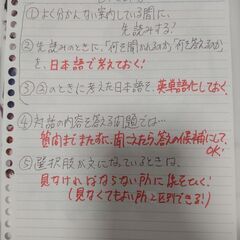 ①よく分かんない案内している間に、
先読みする!
②先読みのときに、「何を聞かれるのか」「何を答えるのか」
を、日本語で考えておく!
③②のときに考えた日本語を、英単語化しておく!
④対話の内容を答える問題では…
質問までまたずに、聞こえたら、答えの候補にして
OK!
⑤選択肢が文になっているときは、
見なければならない所に線をひく!
(見なくてもよい所と区別できる!)